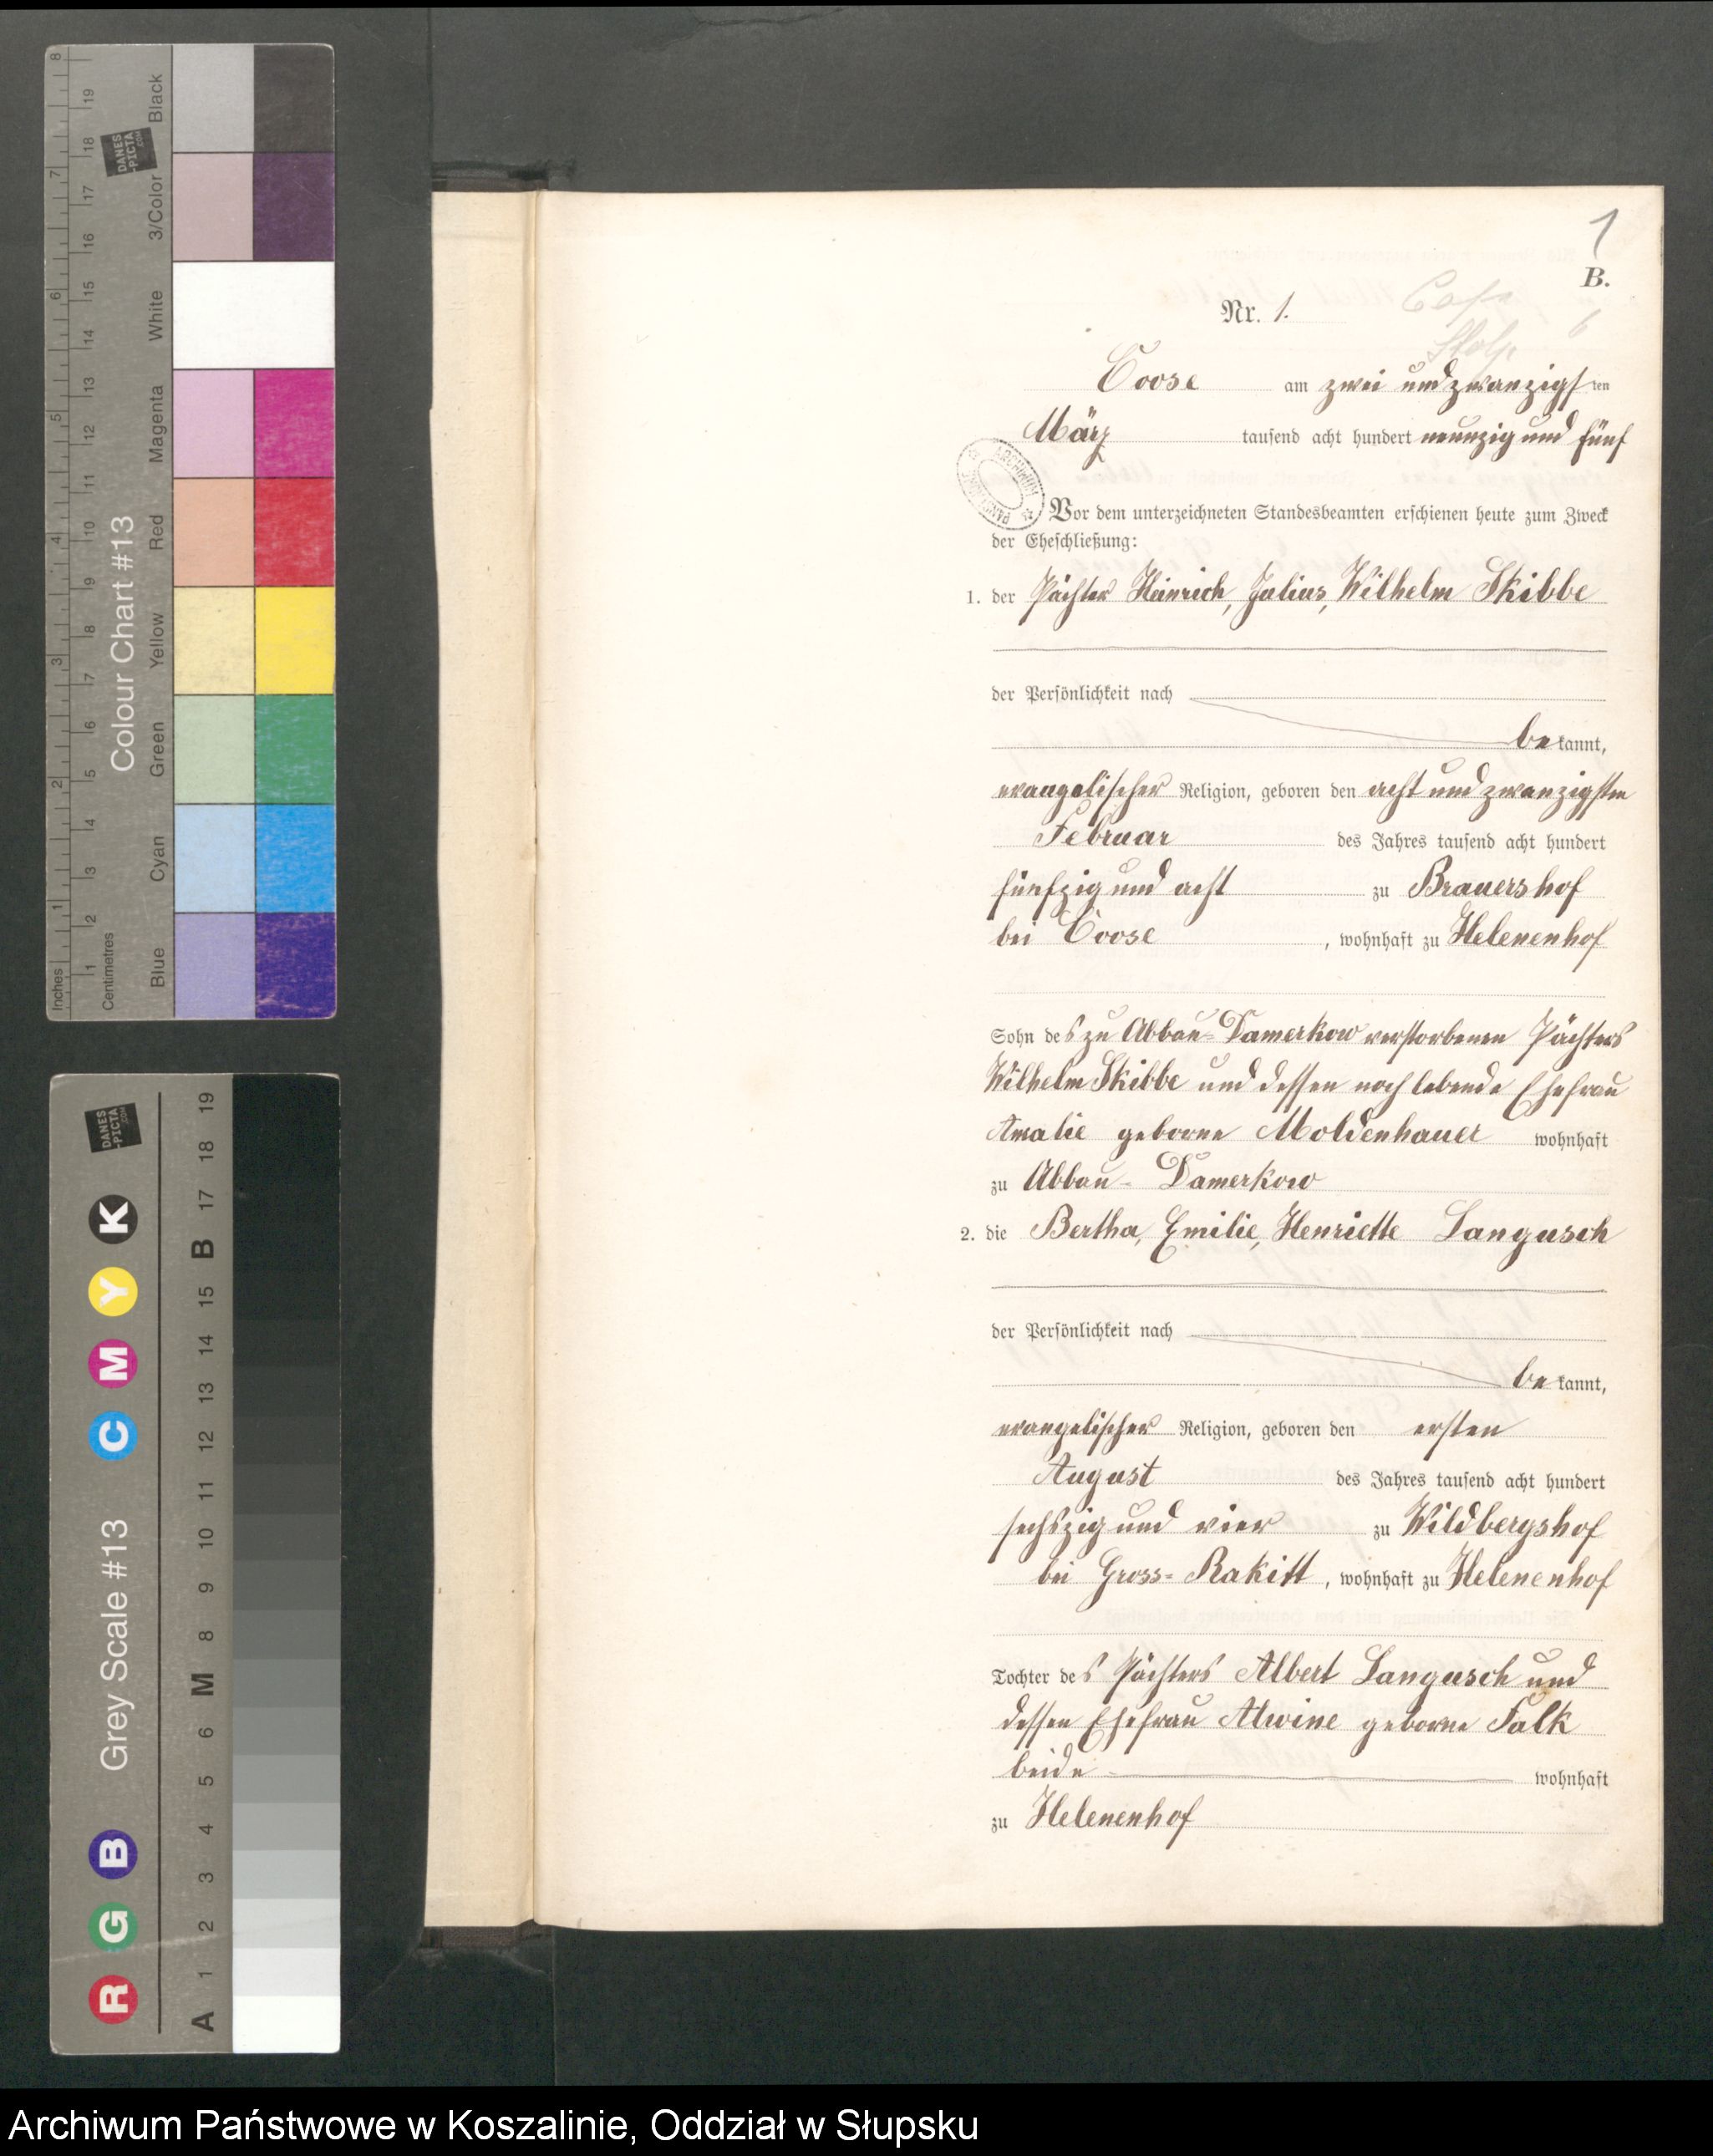 1
B.
Nr. 1.
Coose am zwei und zwanzigsten
März tausend acht hundert neunzig und fünf
Vor dem unterzeichneten Standesbeamten erschienen heute zum Zweck
der Eheschließung:
1. der Pächter Heinrich, Julius, Wilhelm Skibbe
der Persönlichkeit nach
bekannt,
evangelischer Religion, geboren den acht und zwanzigsten
Februar des Jahres tausend acht hundert
fünfzig und acht zu Brauershof
bei Coose, wohnhaft zu Helenenhof
Sohn des zu Abbau-Damerkow verstorbenen Pächters
Wilhelm Skibbe und dessen noch lebende Ehefrau
Amalie geborne Moldenhauer wohnhaft
zu Abbau-Damerkow
2. die Bertha, Emilie, Henriette Langusch
der Persönlichkeit nach
bekannt,
evangelischer Religion, geboren den ersten
August des Jahres tausend acht hundert
sechszig und vier zu Wildbergshof
bei Gross-Rakitt, wohnhaft zu Helenenhof
Tochter des Pächters Albert Langusch und
dessen Ehefrau Alwine geborne Falk
beide wohnhaft
zu Helenenhof
Colour Chart #13
Black
3/Color
White
Magenta
Red
Yellow
Green
Cyan
Blue
Inches 1 2 3 4 5 6 7 8
Centimetres 1 2 3 4 5 6 7 8 9 10 11 12 13 14 15 16 17 18 19
DANES
-PICTA
.COM
Grey Scale #13
R G B C M Y K
A 1 2 3 4 5 6 M 8 9 10 11 12 13 14 15 B 17 18 19
DANES
-PICTA
.COM
Archiwum Państwowe w Koszalinie, Oddział w Słupsku